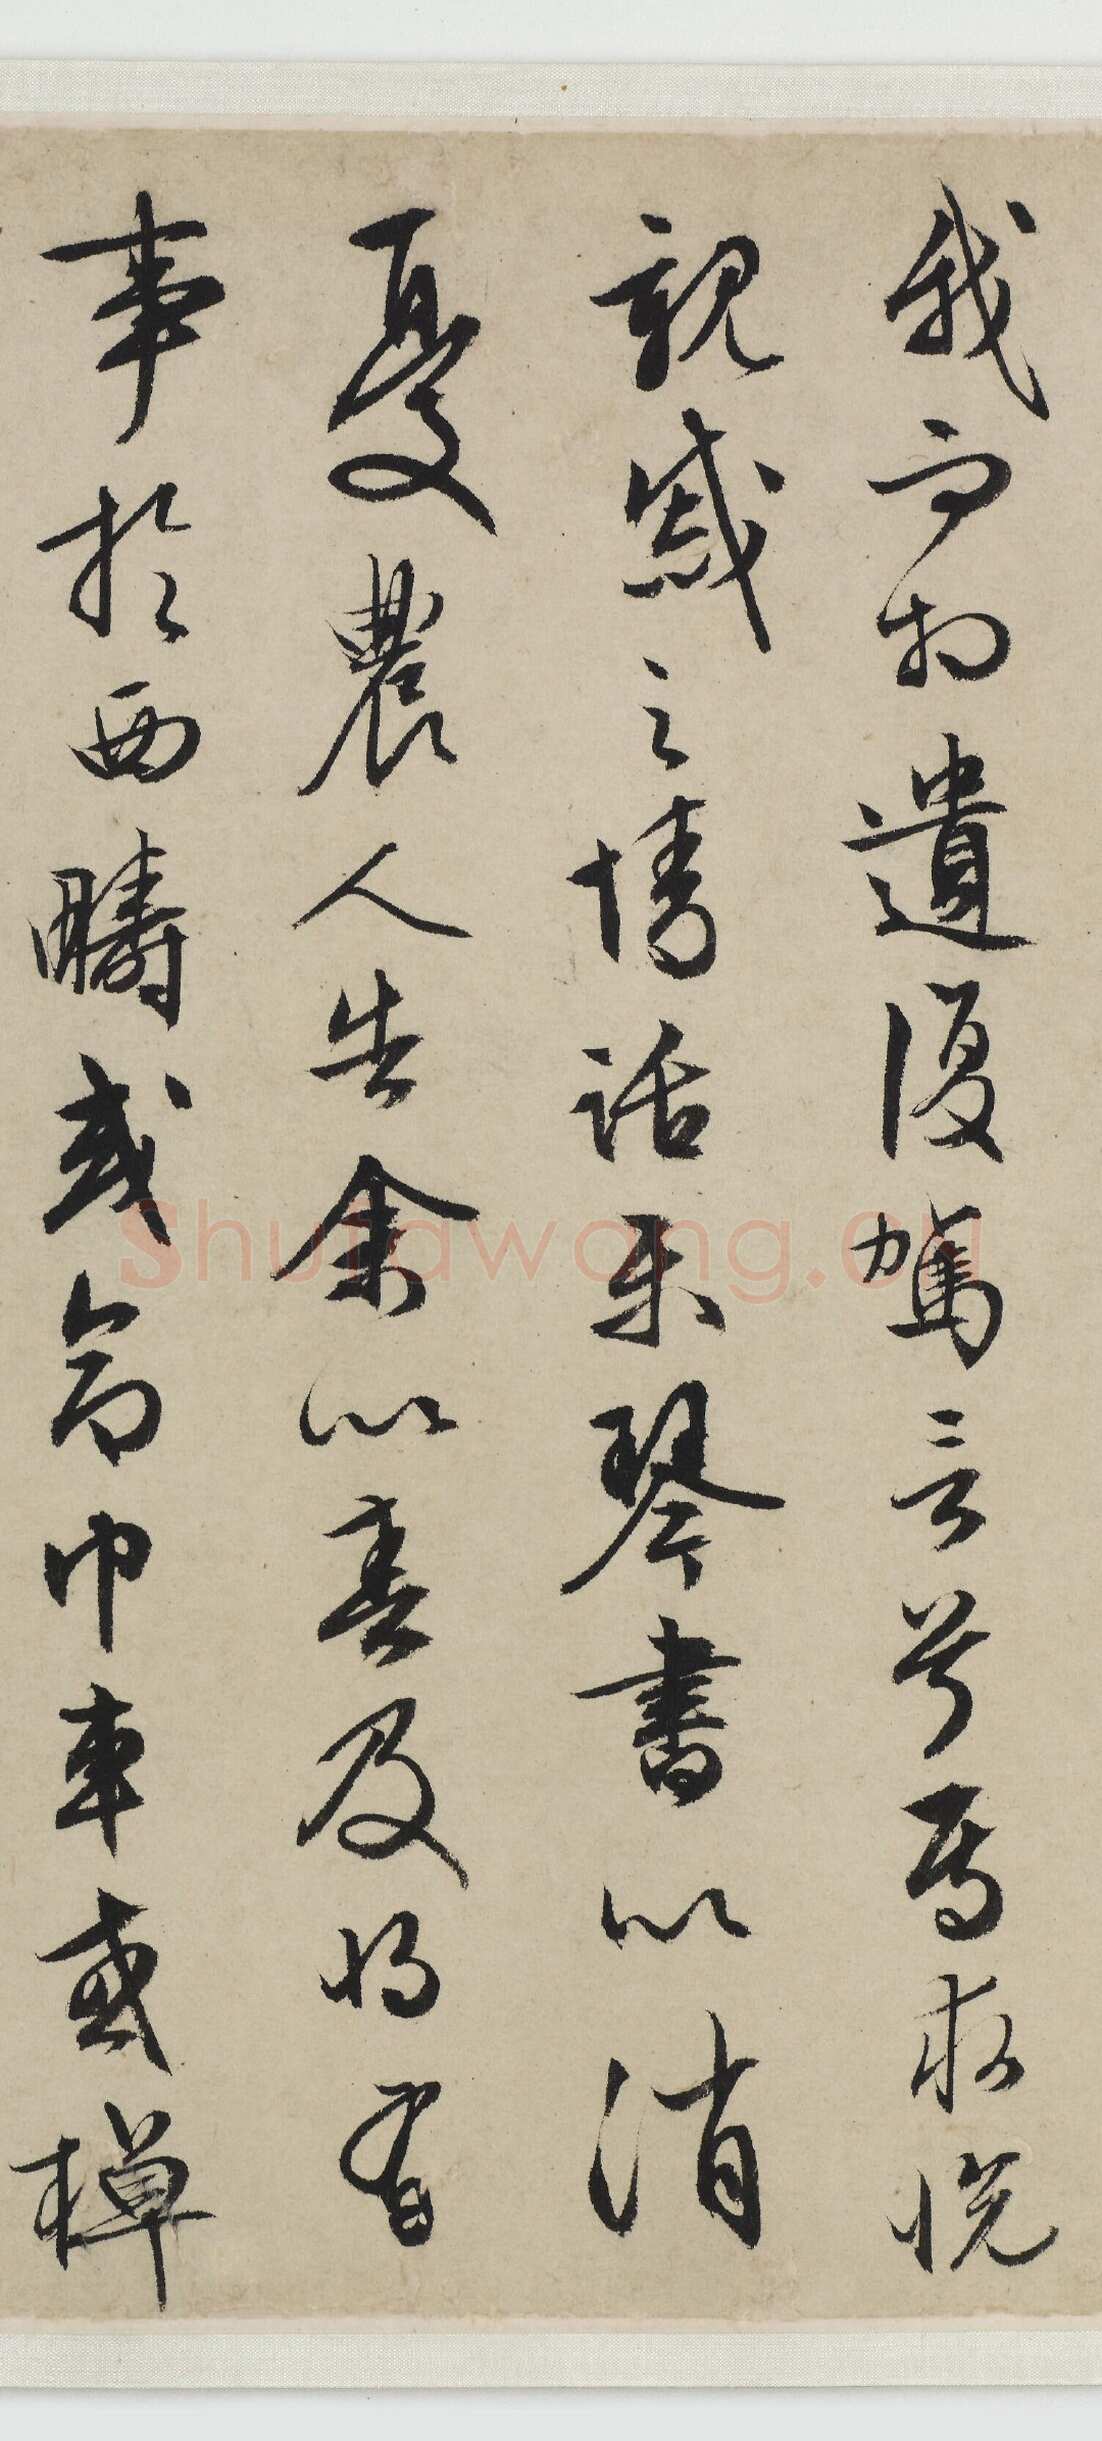 我而相遺復駕言兮焉求悅
親戚之情話樂琴書以消
憂農人告余以春及將有
事於西疇或命巾車或棹
Shufawang.cn